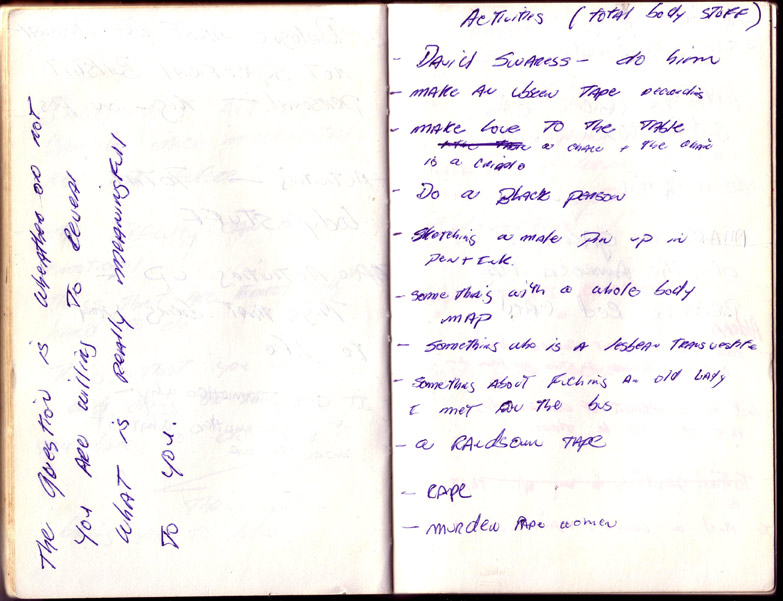 The Question is wheather or not
you are willing to reveal
what is really meaningfull
to you.
Activities (total body stuff)
- David - do him
- make an tape recording
- make love to the table
a chair + the chair
is a
- Do a Black person
- Sketching a male pin up in
pen + ink.
- something with a whole body
map.
- something who is a lesbean transvestite
- something about an old lady
I met on the bus
- a tape
- rape
- murder women